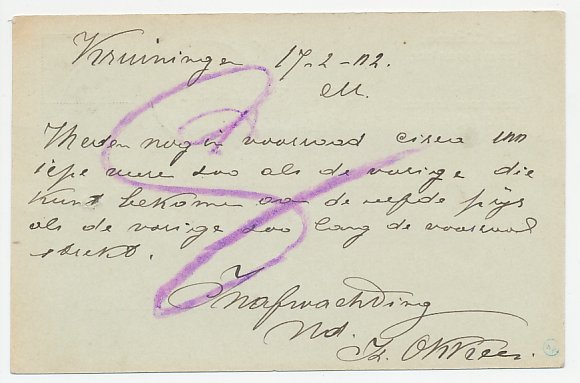 Kruiningen 17-2-02.
M.
Heden nog in voorraad circa
iepe zoo als de vorige die
kunt bekomen aan de zelfde prijs
als de vorige zoo lang de voorraad
strekt.
Inafwachting